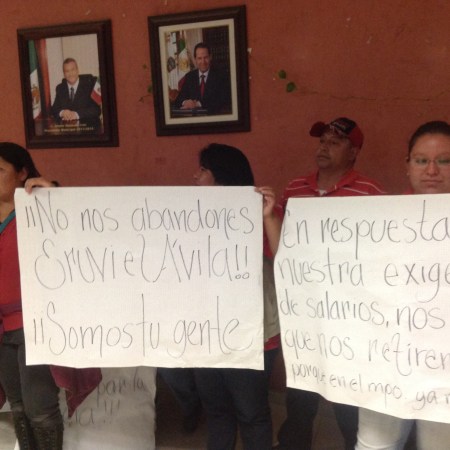 ¡¡No nos abandones
Eruviel Ávila!!
¡¡Somos tu gente
En respuesta
nuestra exige
de salarios, nos
que nos retiren
porque en el mpo ya n
por la